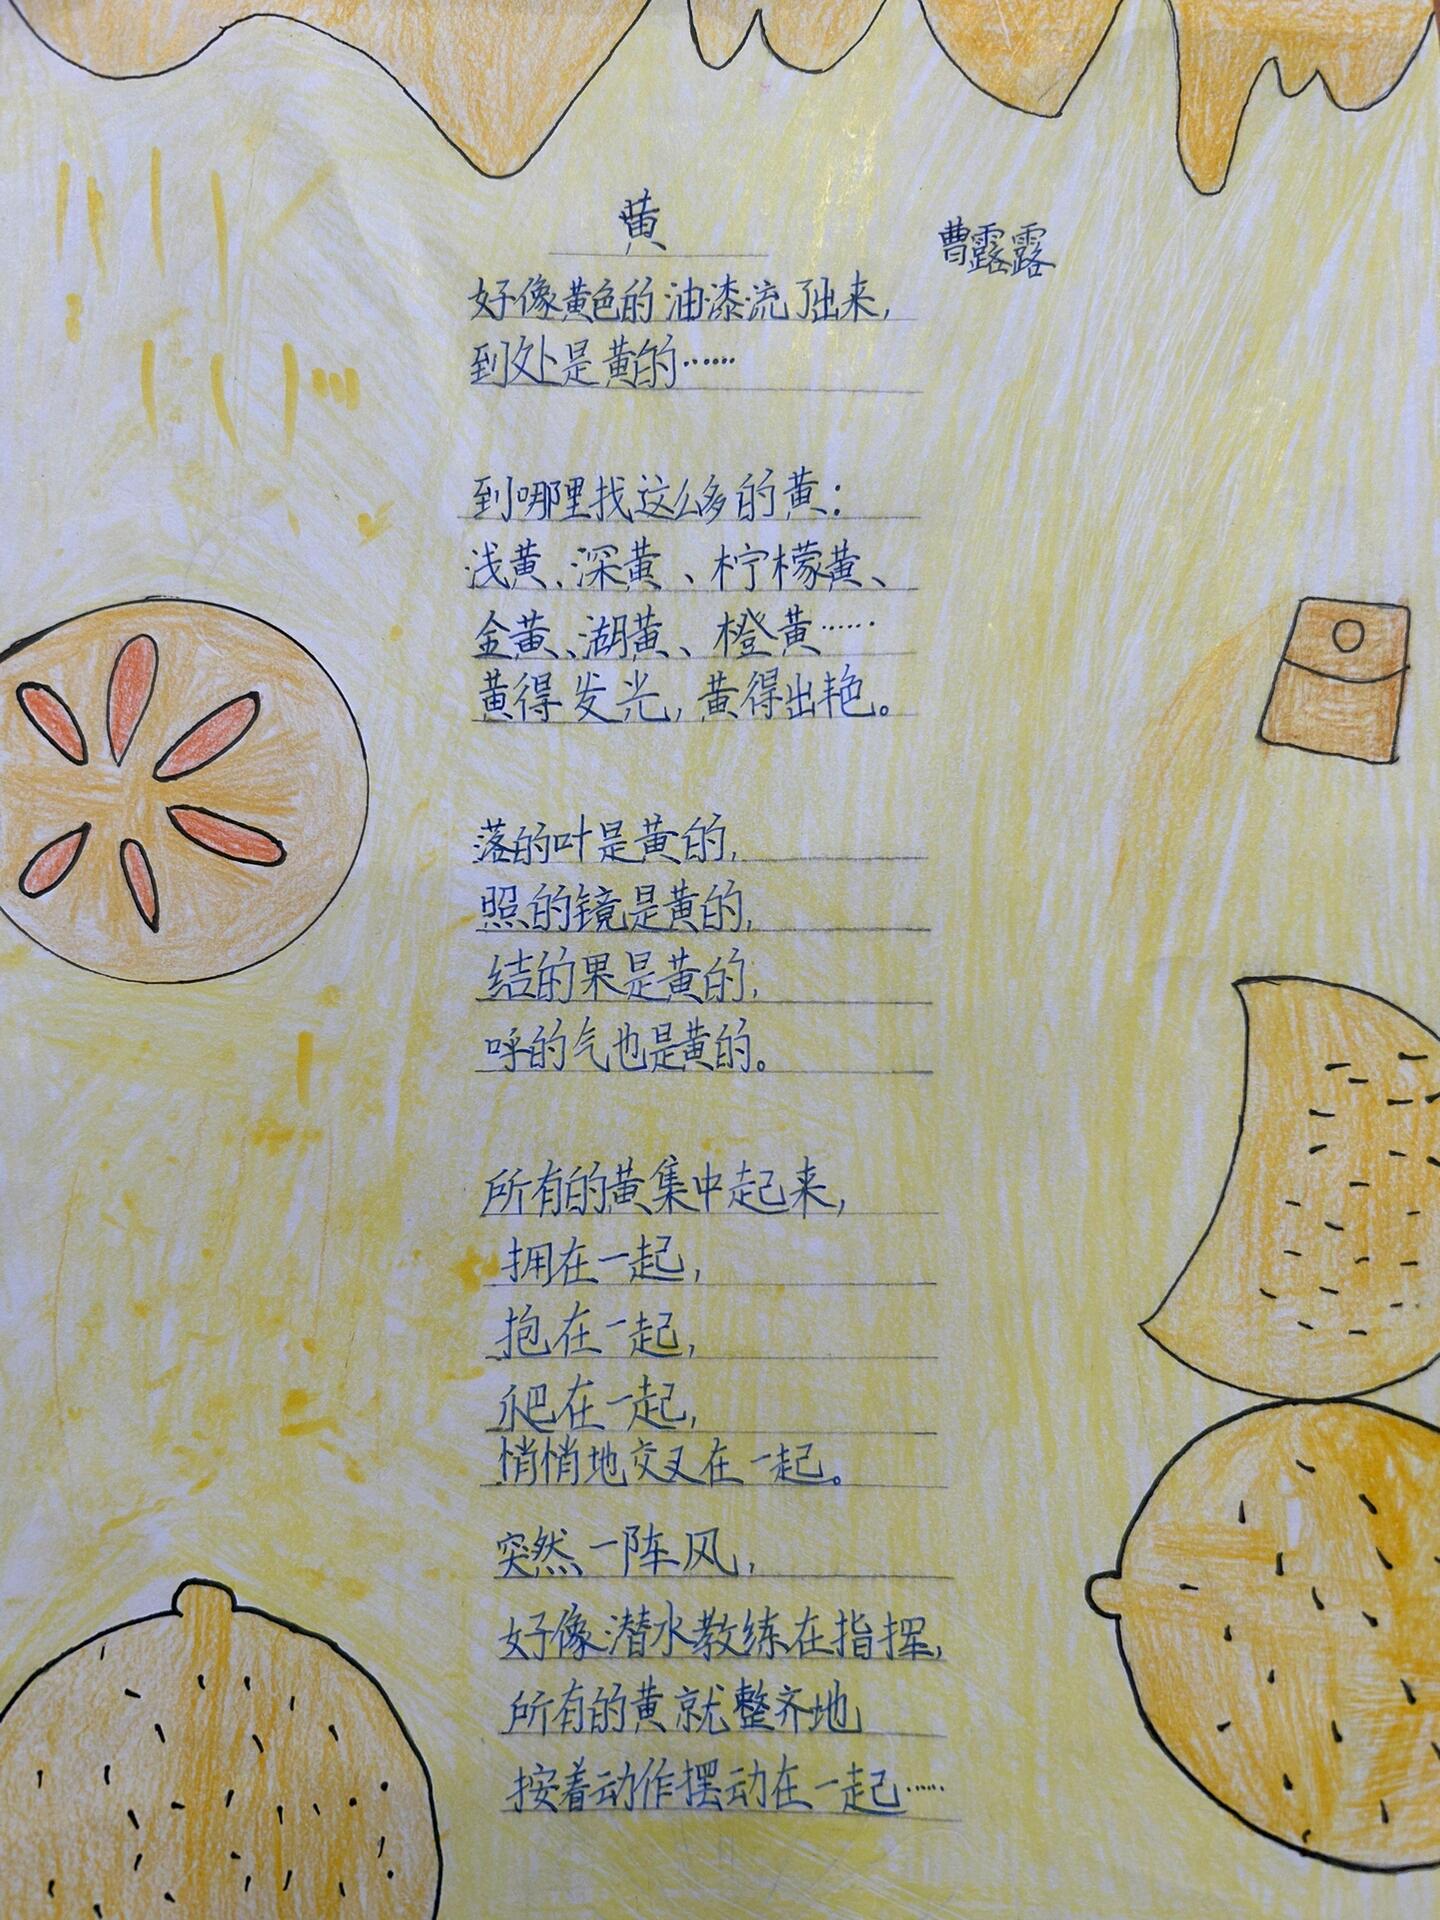 黄
曹露露
好像黄色的油漆流了出来,
到处是黄的……
到哪里找这么多的黄:
浅黄、深黄、柠檬黄、
金黄、湖黄、橙黄……
黄得发光,黄得出艳。
落的叶是黄的,
照的镜是黄的,
结的果是黄的,
呼的气也是黄的。
所有的黄集中起来,
拥在一起,
抱在一起,
爬在一起,
悄悄地交叉在一起。
突然一阵风,
好像潜水教练在指挥,
所有的黄就整齐地
按着动作摆动在一起……